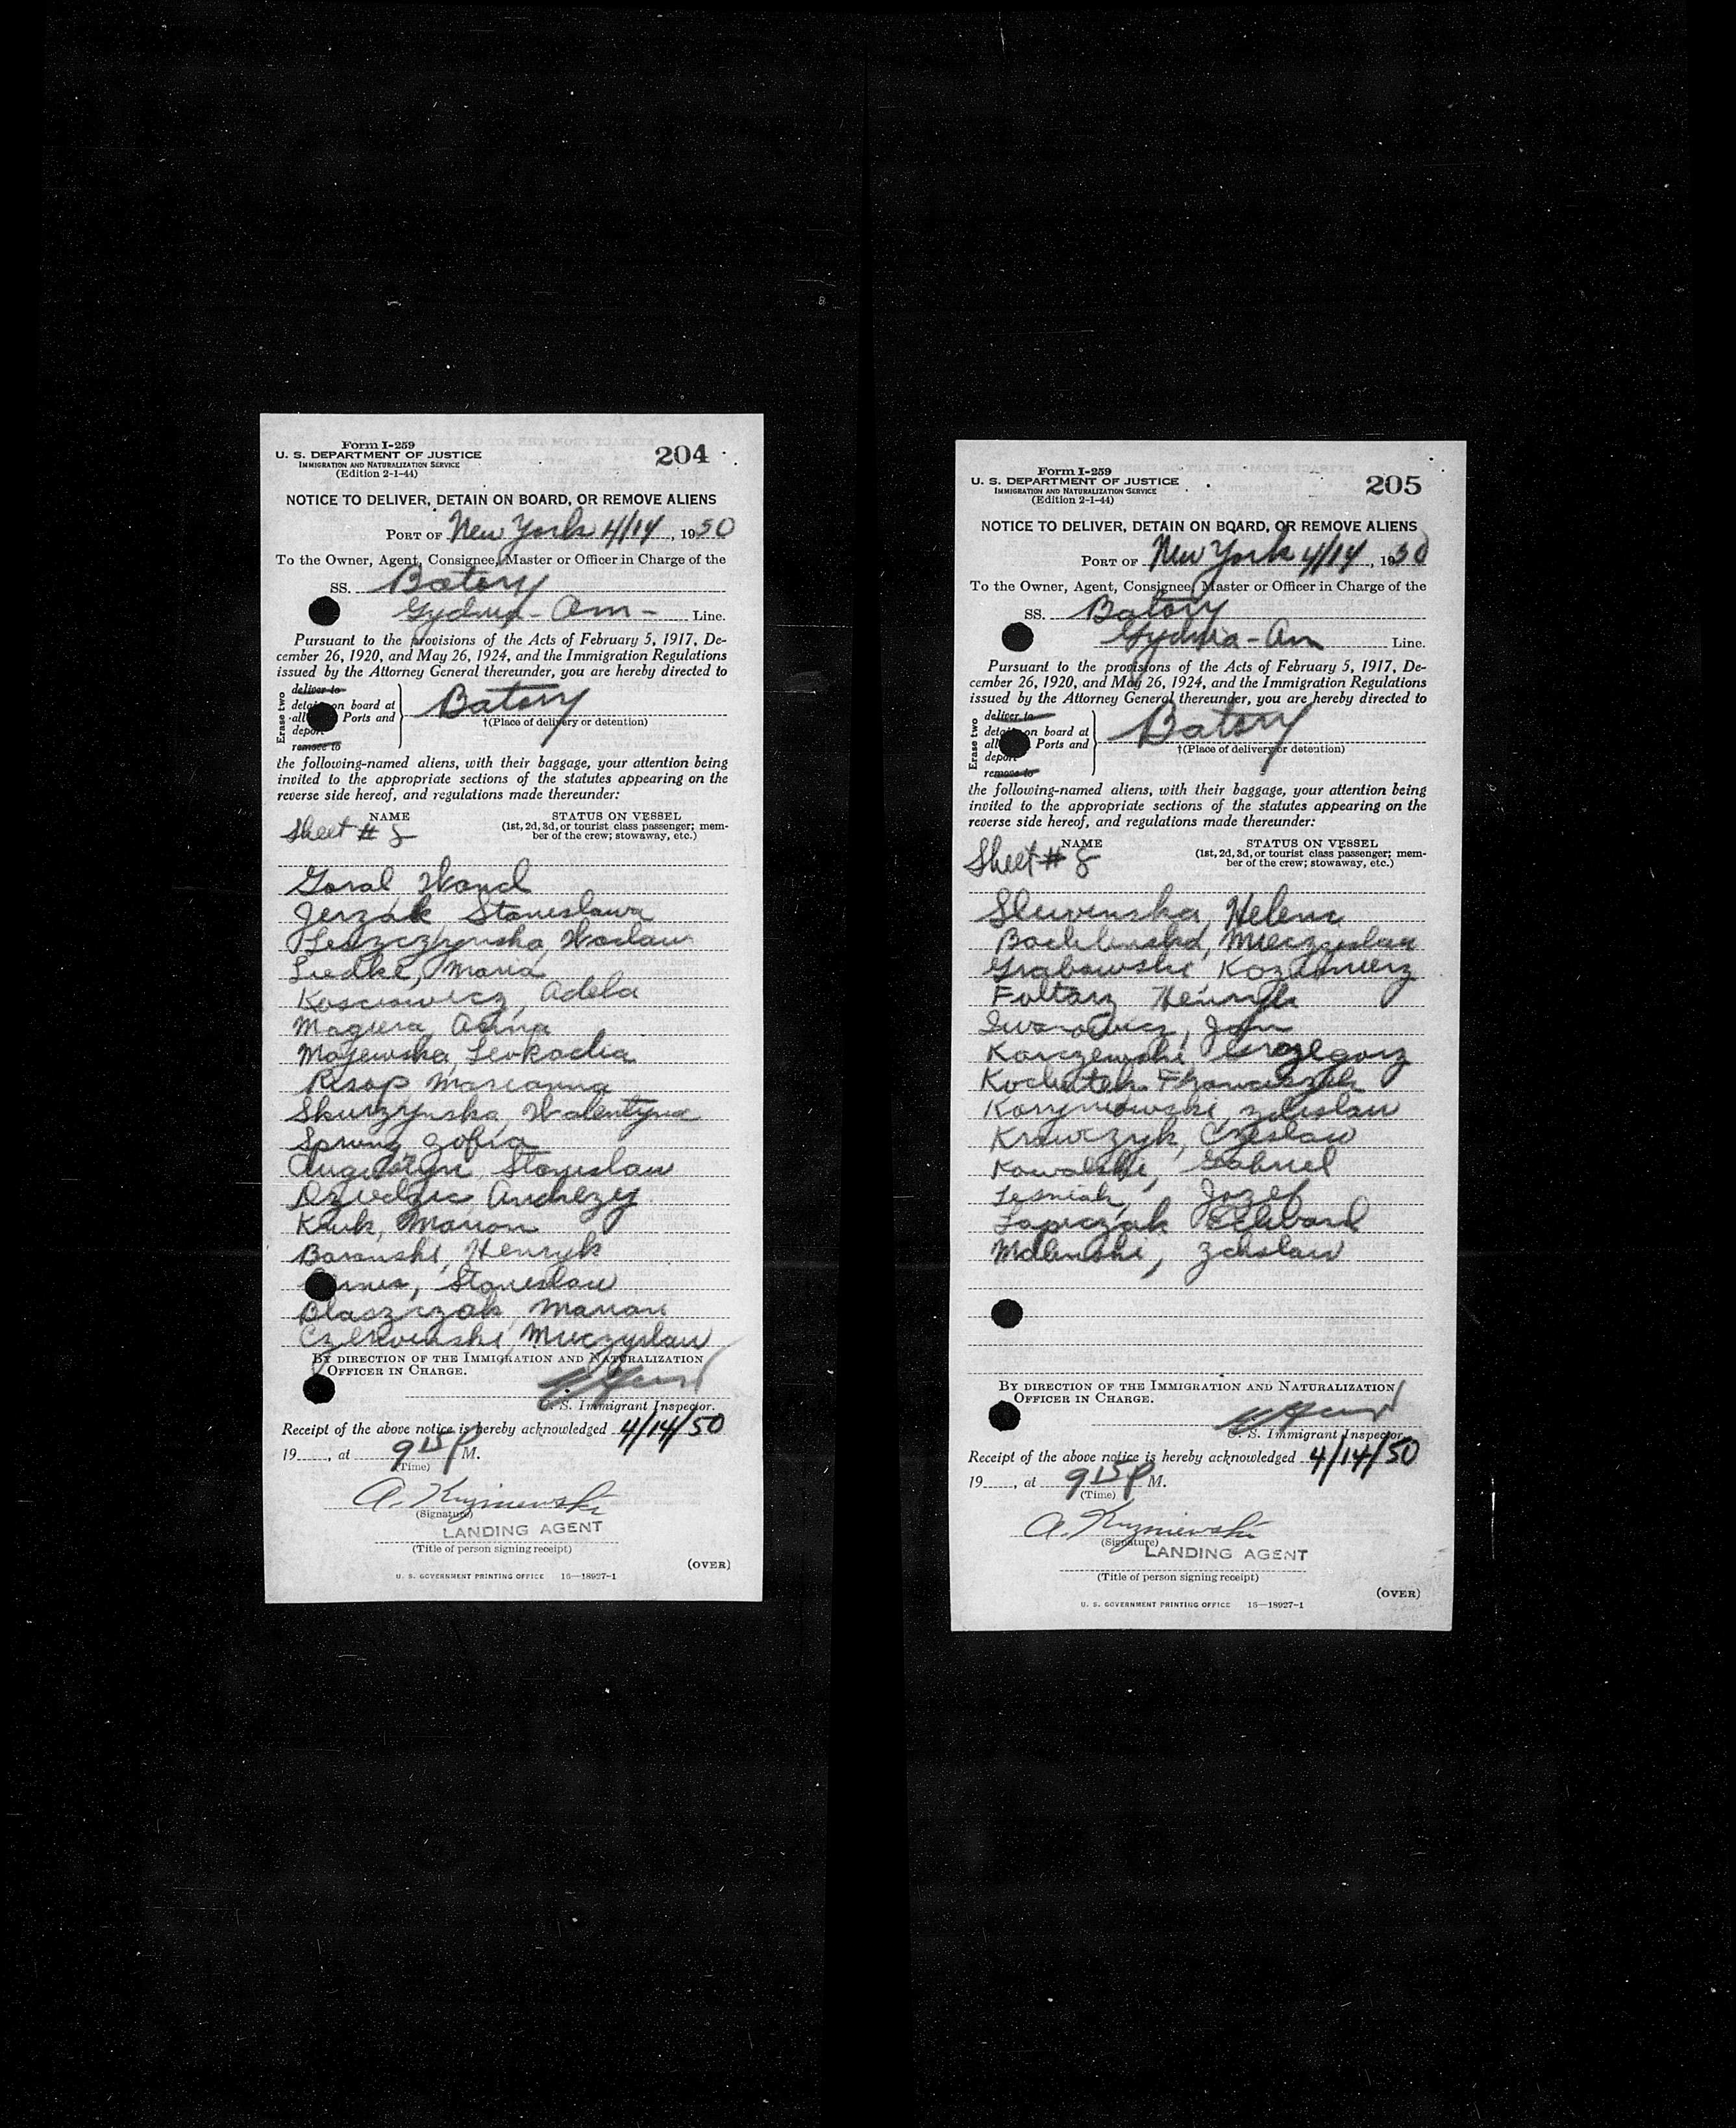 Form I-259
U. S. DEPARTMENT OF JUSTICE
IMMIGRATION AND NATURALIZATION SERVICE
(Edition 2-1-44)
204
NOTICE TO DELIVER, DETAIN ON BOARD, OR REMOVE ALIENS
PORT OF New York 4/14, 1950
To the Owner, Agent, Consignee, Master or Officer in Charge of the
SS. Batory
Gydnia-Am- Line.
Pursuant to the provisions of the Acts of February 5, 1917, De-
cember 26, 1920, and May 26, 1924, and the Immigration Regulations
issued by the Attorney General thereunder, you are hereby directed to
Erase two
deliver to
detain on board at
all Ports and
deport
remove to
Batory
†(Place of delivery or detention)
the following-named aliens, with their baggage, your attention being
invited to the appropriate sections of the statutes appearing on the
reverse side hereof, and regulations made thereunder:
NAME
STATUS ON VESSEL
(1st, 2d, 3d, or tourist class passenger; mem-
ber of the crew; stowaway, etc.)
Sheet # 8
Goral Wand
Jerzak Stanislawa
Leszczzynska, Waclaw
Liedke, Maria
Kosciowicz, Adela
Magiera, Anna
Majewska, Leokadia
Risop Marianna
Skurzynska, Walentyna
Sprung Zofia
Augustyn, Stanislaw
Dziedzic, Andrezej
Kruk, Marion
Baranski, Henryk
Stanislaw
Blaszczak, Marian
Czerwinski, Mieczyslaw
BY DIRECTION OF THE IMMIGRATION AND NATURALIZATION
OFFICER IN CHARGE.
U. S. Immigrant Inspector.
Receipt of the above notice is hereby acknowledged 4/14/50
19, at 9 15 P M.
(Time)
A. Kuzniewski
(Signature)
LANDING AGENT
(Title of person signing receipt)
(OVER)
U. S. GOVERNMENT PRINTING OFFICE 16—18927-1
Form I-259
U. S. DEPARTMENT OF JUSTICE
IMMIGRATION AND NATURALIZATION SERVICE
(Edition 2-1-44)
205
NOTICE TO DELIVER, DETAIN ON BOARD, OR REMOVE ALIENS
PORT OF New York 4/14, 1950
To the Owner, Agent, Consignee, Master or Officer in Charge of the
SS. Batory
Gydnia-Am Line.
Pursuant to the provisions of the Acts of February 5, 1917, De-
cember 26, 1920, and May 26, 1924, and the Immigration Regulations
issued by the Attorney General thereunder, you are hereby directed to
Erase two
deliver to
detain on board at
all Ports and
deport
remove to
Batory
†(Place of delivery or detention)
the following-named aliens, with their baggage, your attention being
invited to the appropriate sections of the statutes appearing on the
reverse side hereof, and regulations made thereunder:
NAME
STATUS ON VESSEL
(1st, 2d, 3d, or tourist class passenger; mem-
ber of the crew; stowaway, etc.)
Sheet # 8
Sliwinska, Helena
Mieczyslaw
Grabowski Kozimierz
Foltarz Henryk
Iwanowicz, Jan
Karczewski Grzegorz
Franciszek
Zdzislaw
Krawczyk, Czeslaw
Kowalski, Gabriel
Lesniak, Jozef
Lapiczak Edward
Malinski, Zdislaw
BY DIRECTION OF THE IMMIGRATION AND NATURALIZATION
OFFICER IN CHARGE.
U. S. Immigrant Inspector.
Receipt of the above notice is hereby acknowledged 4/14/50
19, at 9 15 P M.
(Time)
A. Kuzniewski
(Signature)
LANDING AGENT
(Title of person signing receipt)
(OVER)
U. S. GOVERNMENT PRINTING OFFICE 16—18927-1